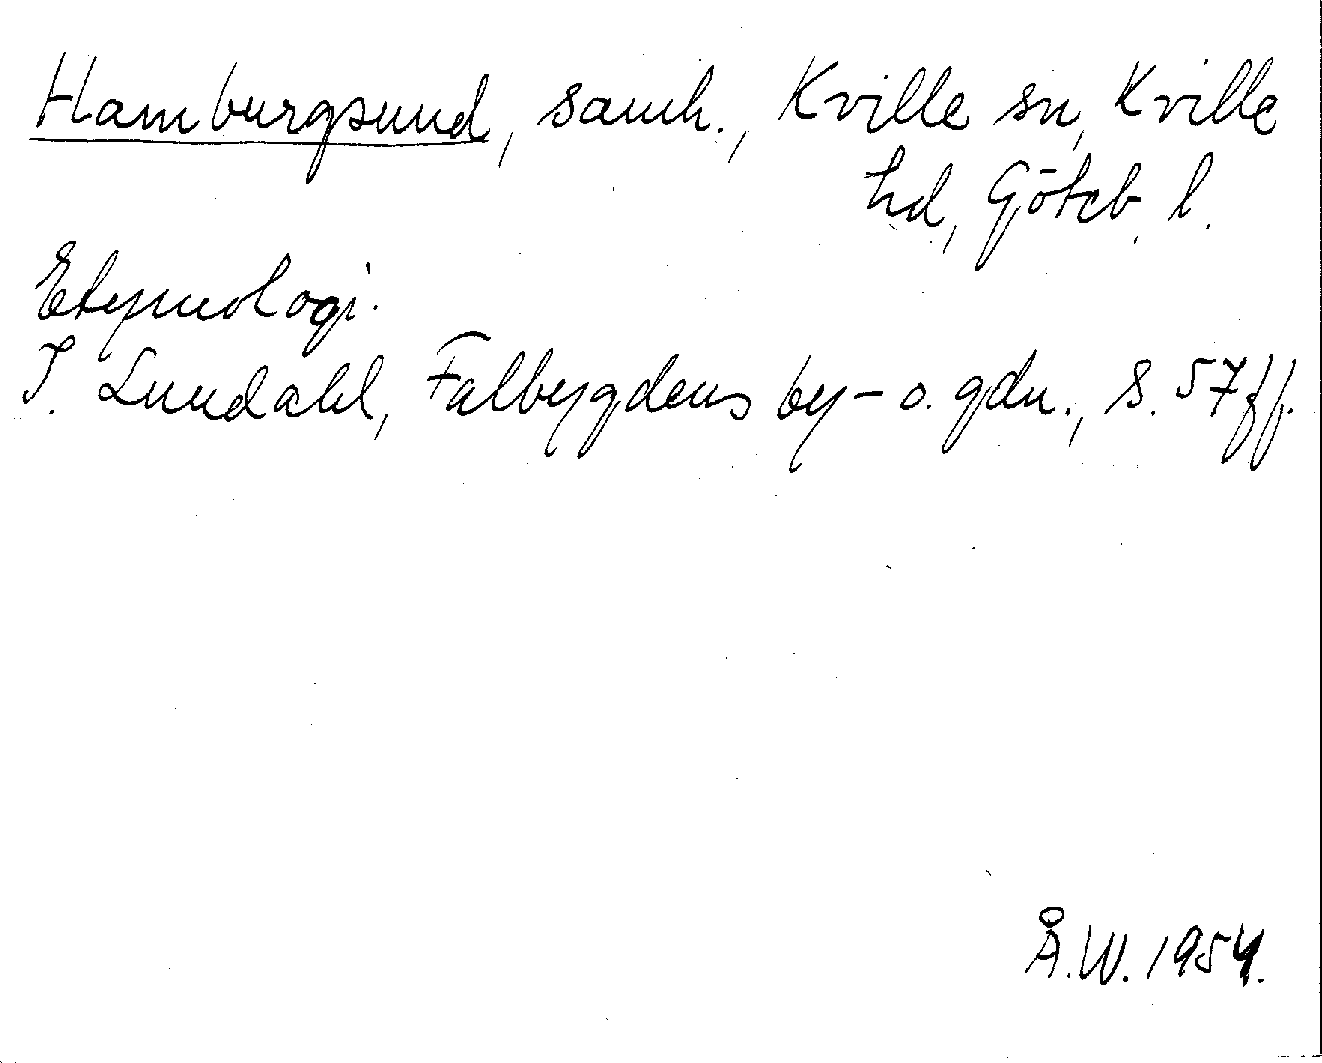 Hamburgsund, samh., Kville sn, Kville
hd, Göteb. l.
Etymologi.
I. Lundahl, Falbygdens by- o. gdn., s. 57 ff.
Å.W. 1954.